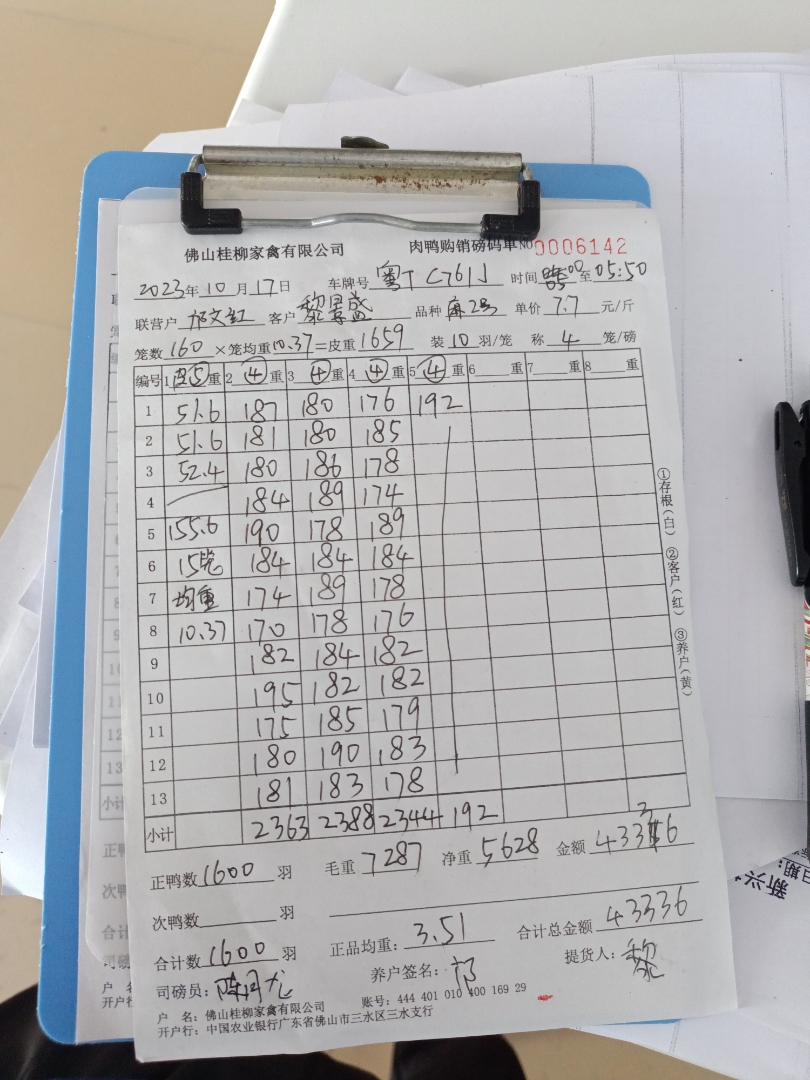 佛山桂柳家禽有限公司 肉鸭购销磅码单 NO 0006142
2023年10月17日 车牌号 粤T C761J 时间 至05:50
联营户 邝文红 客户 黎景盛 品种 麻2号 单价 7.7 元/斤
笼数 160 ×笼均重 10.37 =皮重 1659 装 10 羽/笼 称 4 笼/磅
编号 1 皮⑤重 2 ④重 3 ④重 4 ④重 5 ④重 6 重 7 重 8 重
1 51.6 187 180 176 192
2 51.6 181 180 185
3 52.4 180 186 178
4 184 189 174
5 155.6 190 178 189
6 15笼 184 184 184
7 均重 174 189 178
8 10.37 170 178 176
9 182 184 182
10 195 182 182
11 175 185 179
12 180 190 183
13 181 183 178
小计 2363 2388 2344 192
①存根(白) ②客户(红) ③养户(黄)
正鸭数 1600 羽 毛重 7287 净重 5628 金额 43336
次鸭数 羽
合计数 1600 羽 正品均重: 3.51 合计总金额 43336
司磅员: 养户签名: 邝 提货人: 黎
户 名: 佛山桂柳家禽有限公司 账号: 444 401 010 400 169 29
开户行: 中国农业银行广东省佛山市三水区三水支行